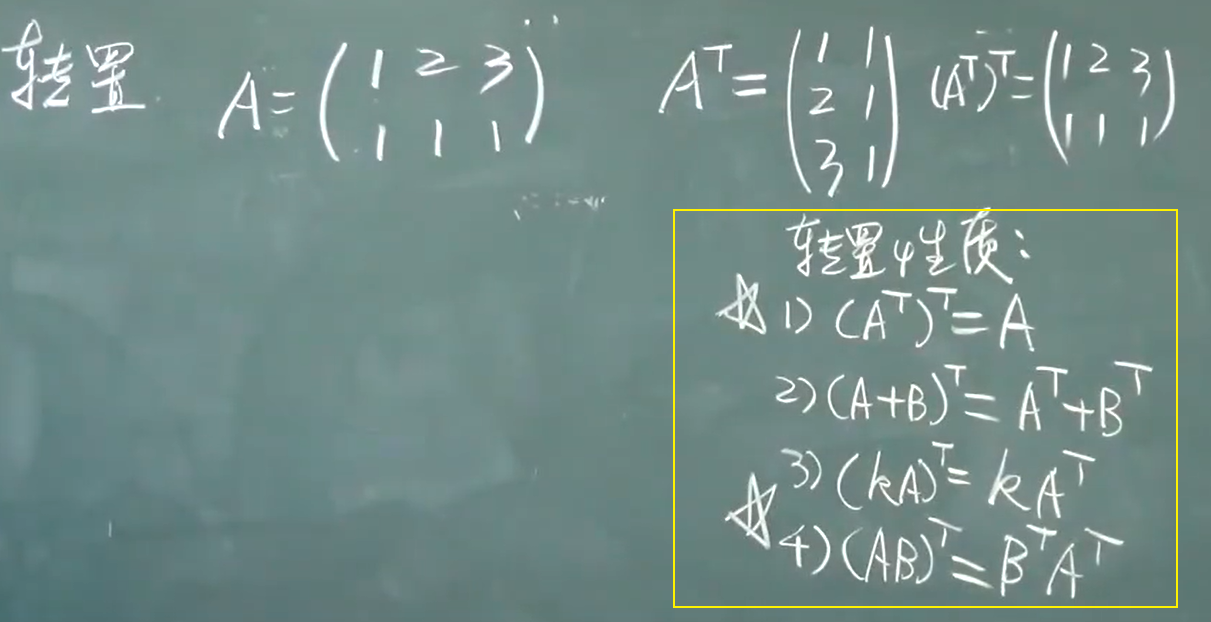 转置 A = ( 1 2 3 ; 1 1 1 ) Aᵀ = ( 1 1 ; 2 1 ; 3 1 ) (Aᵀ)ᵀ = ( 1 2 3 ; 1 1 1 )
转置性质:
☆ 1) (Aᵀ)ᵀ = A
2) (A+B)ᵀ = Aᵀ+Bᵀ
3) (kA)ᵀ = kAᵀ
☆ 4) (AB)ᵀ = BᵀAᵀ